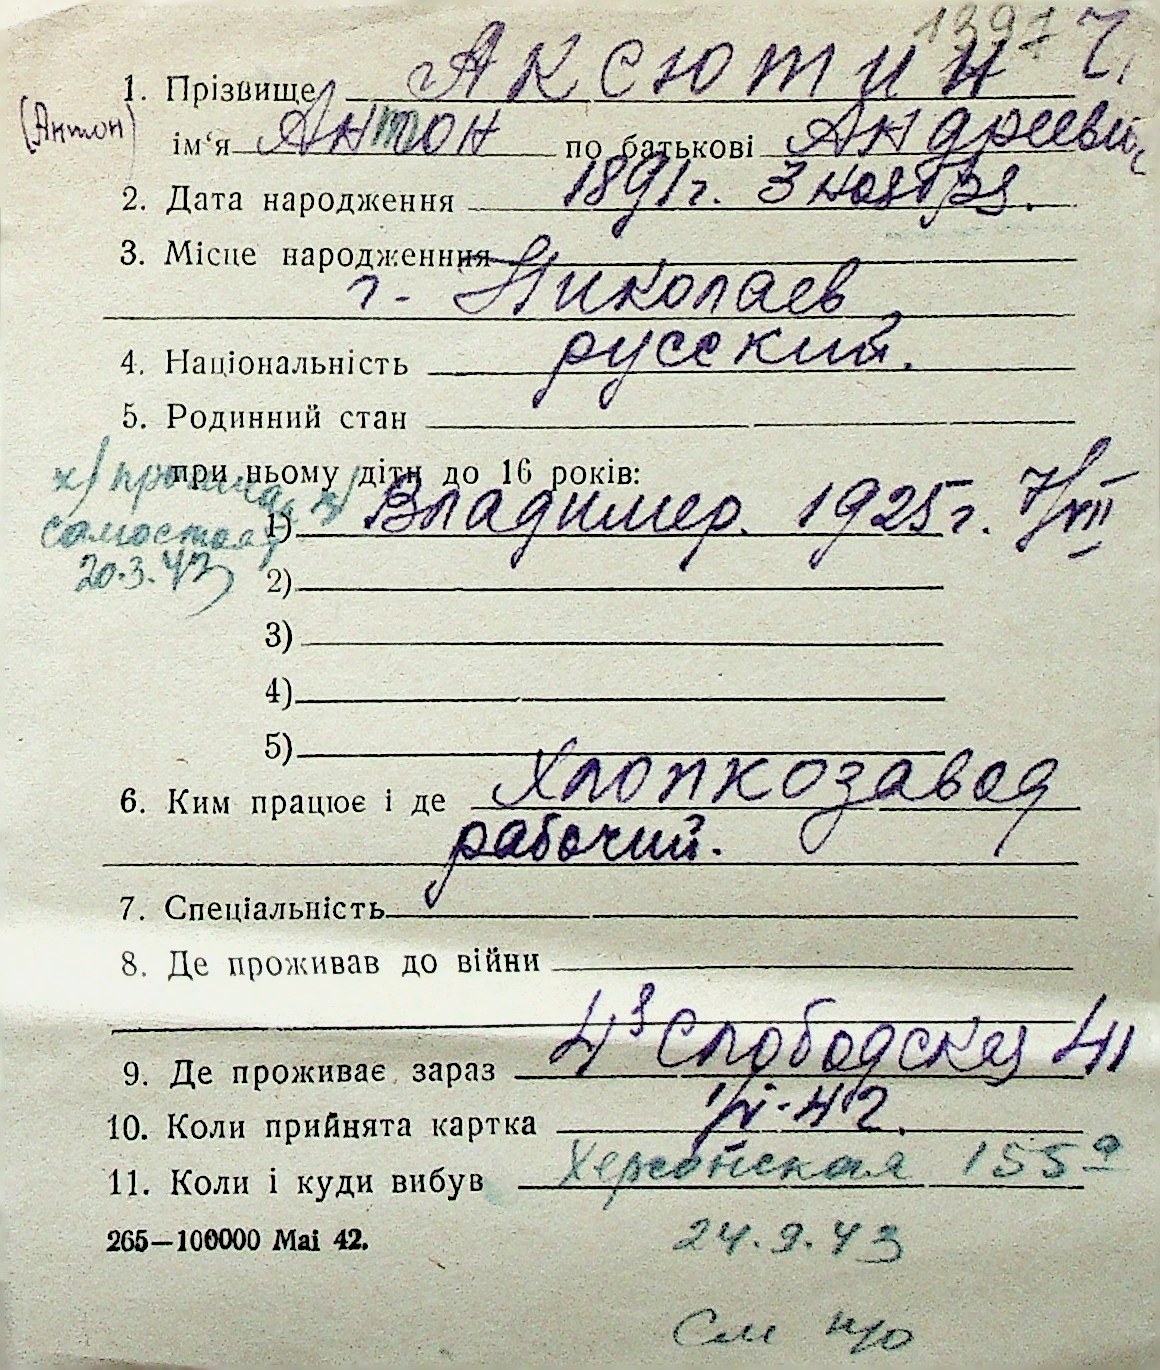 1397 Ч,
1. Прізвище Аксютин
(Антон) ім‘я Антон по батькові Андреевич
2. Дата народження 1891г. 3 ноября.
3. Місце народженння
г. Николаев
4. Національність русский.
5. Родинний стан
при ньому діти до 16 років:
1) Владимер. 1925г. 7/VIII
х/
самостоят
20.3.43
2)
3)
4)
5)
6. Ким працює і де Хлопкозавод
рабочий.
7. Спеціальність
8. Де проживав до війни
9. Де проживає зараз 4я Слободская 41
10. Коли прийнята картка
11. Коли і куди вибув Херсонская 155а
265—100000 Mai 42.
24.9.43
См